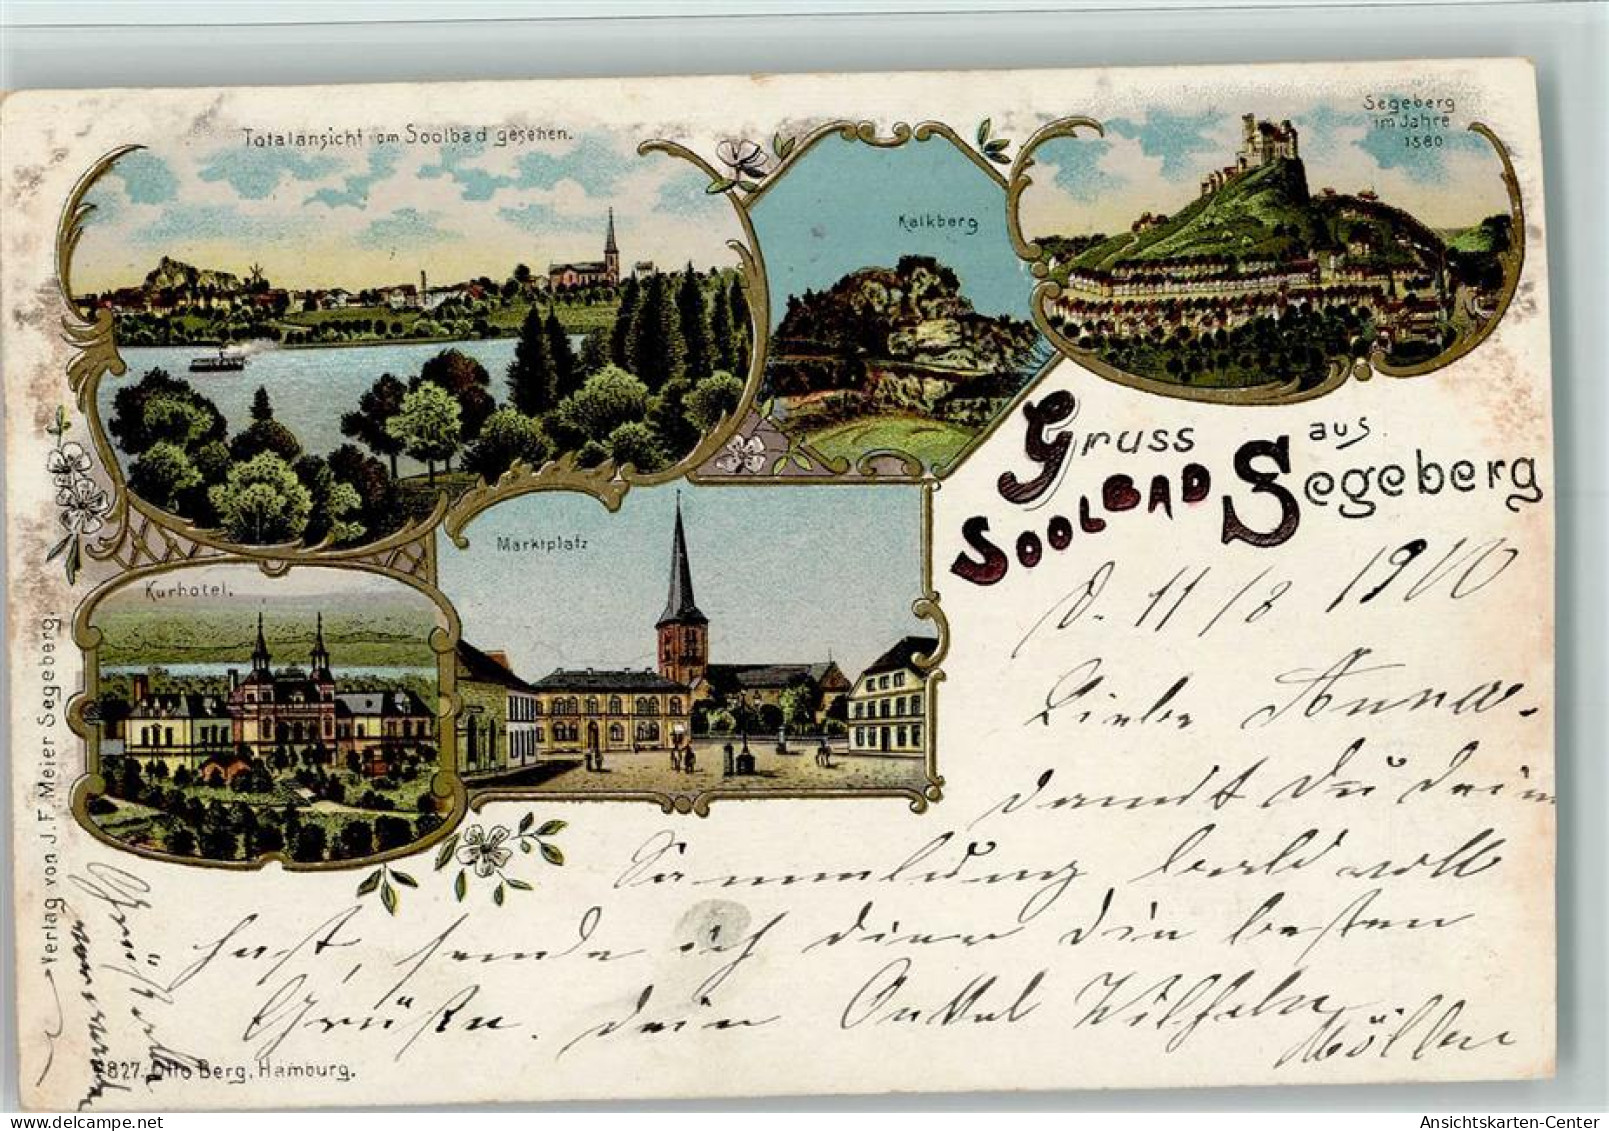 Totalansicht vom Soolbad gesehen.
Kalkberg
Segeberg
im Jahre
1580
Gruss aus
Soolbad Segeberg
Kurhotel.
Marktplatz
D. 11/8 1900
Liebe Anna.
damit Du dein
Sammlung bald voll
hast, sende ich dir die besten
Grüße. dein Onkel Wilhelm
Möller
Grüß
von
Verlag von J. F. Meier Segeberg.
827. Otto Berg, Hamburg.
Ansichtskarten-Center